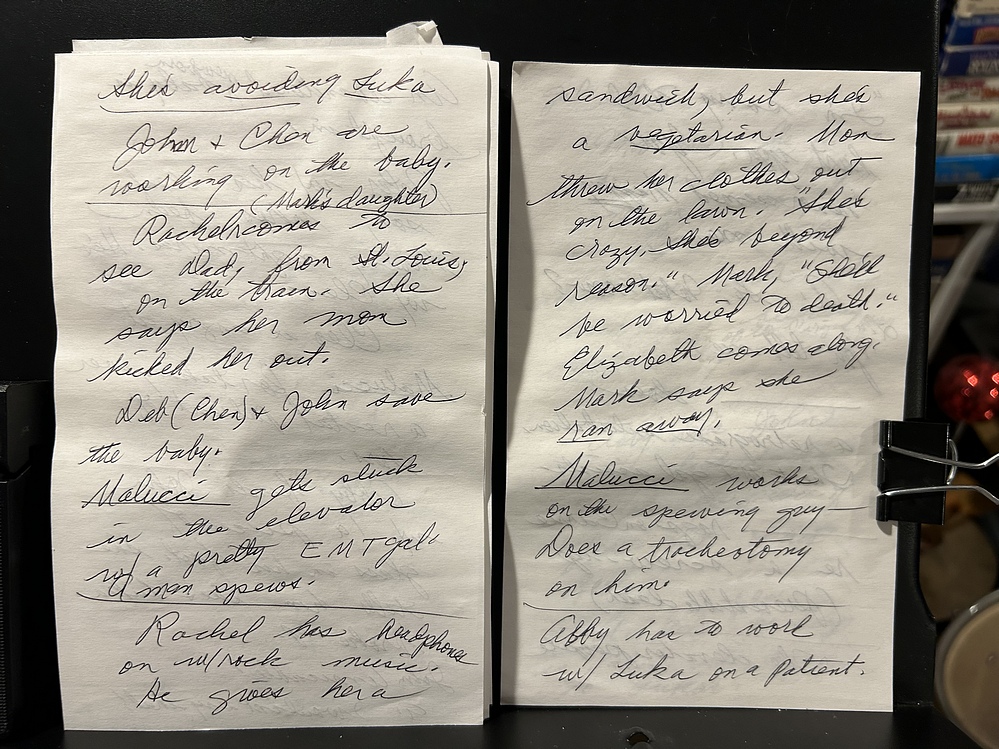 She's avoiding Luka
John + Chen are
working on the baby.
(Mark's daughter)
Rachel comes to
see Dad, from St. Louis,
on the train. She
says her mom
kicked her out.
Deb (Chen) + John save
the baby.
Malucci gets stuck
in the elevator
w/ a pretty EMT gal.
A man spews.
Rachel has headphones
on w/ rock music.
He gives her a
sandwich, but she's
a vegetarian. Mom
threw her clothes out
on the lawn. "She's
crazy. She's beyond
reason." Mark, "She'll
be worried to death."
Elizabeth comes along.
Mark says she
ran away.
Malucci works
on the spewing guy—
Does a tracheotomy
on him.
Abby has to work
w/ Luka on a patient.